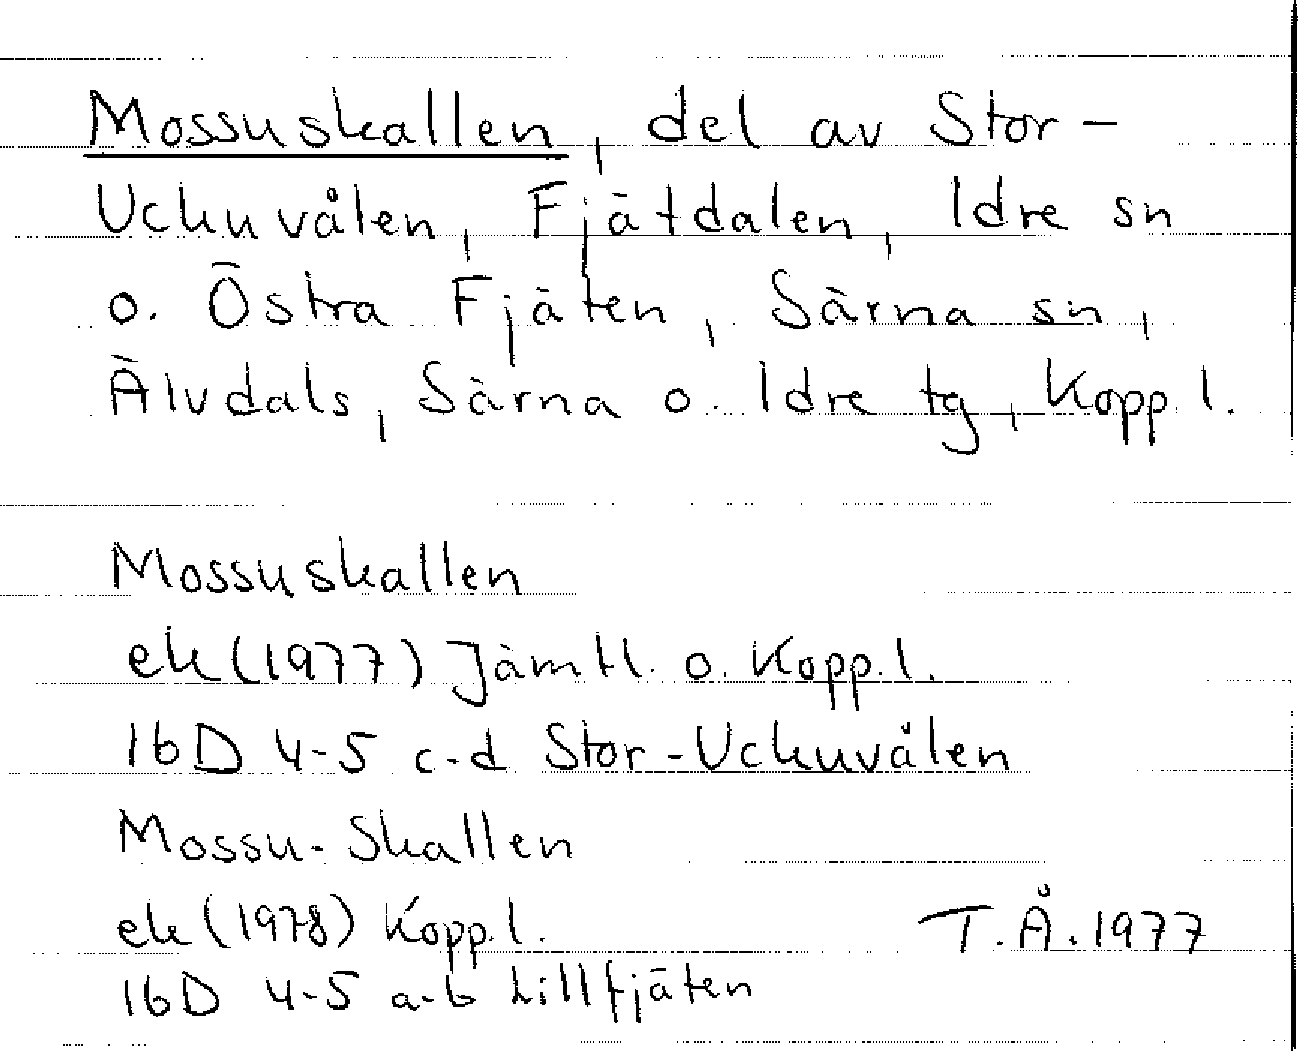 Mossuskallen, del av Stor-
Uckuvålen, Fjätdalen, Idre sn
o. Östra Fjäten, Särna sn,
Älvdals, Särna o. Idre tg, Kopp.l.
Mossuskallen
ek (1977) Jämtl. o. Kopp.l.
16D 4-5 c-d Stor-Uckuvålen
Mossu-Skallen
ek (1978) Kopp.l.
T.Å. 1977
16D 4-5 a-b Lillfjäten